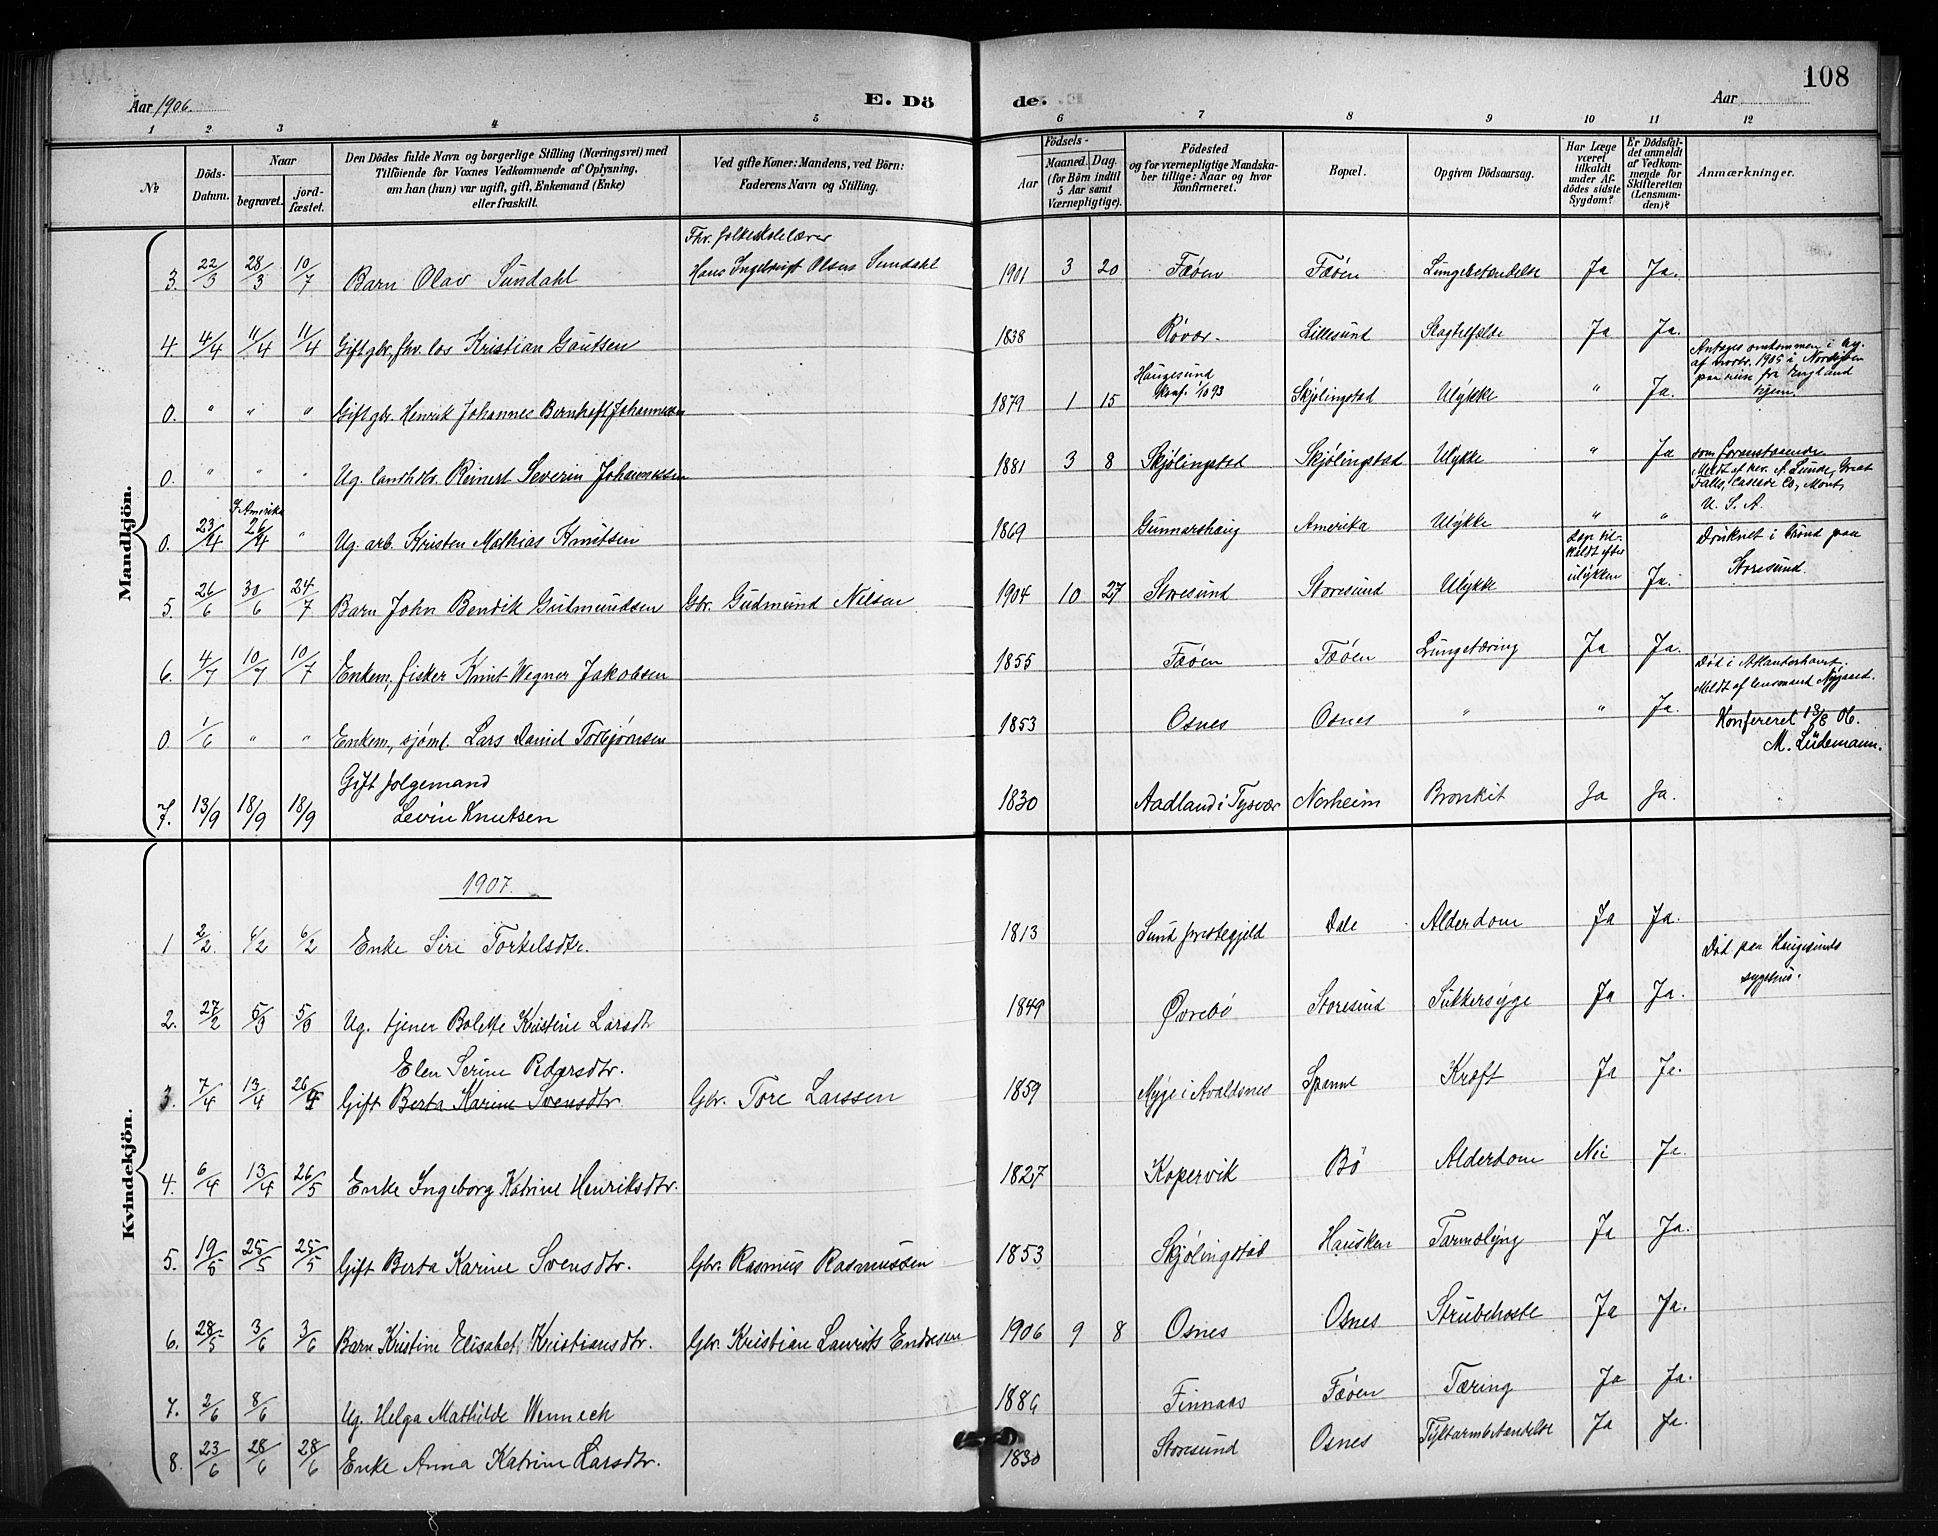 108
Aar 1906.
E. Dö
de.
Aar
1 2 3 4 5 6 7 8 9 10 11 12
No
Döds-Datum.
Naar
begravet.
jordfæstet.
Den Dödes fulde Navn og borgerlige Stilling (Næringsvei) med
Tilföiende for Voxnes Vedkommende af Oplysning,
om han (hun) var ugift, gift, Enkemand (Enke)
eller fraskilt.
Ved gifte Koner: Mandens, ved Börn:
Faderens Navn og Stilling.
Födsels-
Aar
Maaned. Dag.
(for Börn indtil
5 Aar samt
Værnepligtige).
Födested
og for værnepligtige Mandska-
ber tillige: Naar og hvor
konfirmeret.
Bopæl.
Opgiven Dödsaarsag.
Har Læge
været
tilkaldt
under Af-
dödes sidste
Sygdom?
Er Dödsfal-
det anmeldt
af Vedkom-
mende for
Skifteretten
(Lensman-
den)?
Anmærkninger.
Mandkjön.
Fhv. folkeskolelærer
3. 22/3 28/3 10/7 Barn Olav Sundahl Hans Ingebrigt Olsen Sundahl 1901 3 20 Fæøen Fæøen Lungebetændelse Ja Ja.
4 4/4 11/4 11/4 Gift gbr, fhv. los Kristian Gautsen 1838 Røvær. Lillesund Slagtilfælde Ja Ja.
0. " " " Gift gbr. Henrik Johannes Bernhoft Johannessen 1879 1 15 Haugesund Konf. 1/10 93 Skjølingstad Ulykke " Ja. Antages omkommen i beg. af novbr. 1905 i Nordsjøen paa reise fra England hjem.
0. " " " Ug. landhdbr. Reinert Severin Johannessen 1881 3 8 Skjølingstad Skjølingstad Ulykke " Ja som foranstaaende
0. 23/4 I Amerika 26/4 " Ug. arb. Kristen Mathias Knutsen 1869 Gunnarshaug Amerika Ulykke " " Meldt af hr. A. Lunde, Great Falls, Cascade Co, Mont, U. S. A.
5. 26/6 30/6 24/7 Barn John Bendik Gudmundsen Gbr. Gudmund Nilsen 1904 10 27 Storesund Storesund Ulykke Læge tilkaldt efter ulykken Ja. Druknet i brønd paa Storesund.
6. 4/7 10/7 10/7 Enkem, fisker Knut Wegner Jakobsen 1855 Fæøen Fæøen Lungetæring Ja Ja.
0. 1/6 " " Enkem, sjøml. Lars Daniel Torbjørnsen 1853 Osnes Osnes " " Ja. Død i Atlanterhavet. Meldt af lensmand Nygaard.
Konfereret 13/8 06.
M. Lüdemann.
7. 13/9 18/9 18/9 Gift folgemand
Levin Knutsen 1830 Aadland i Tysvær Norheim Bronkit Ja Ja.
Kvindekjön.
1907.
1 2/2. 6/2 6/2 Enke Siri Torkelsdtr. 1813 Sund prestegjeld Dale Alderdom Ja Ja.
2. 27/2 5/3 5/3 Ug. tjener Bolette Kristine Larsdtr 1849 Øvrebø Storesund Sukkersyge Ja Ja. Død paa Haugesunds sygehus.
Elen Serine Pedersdtr.
3. 7/4 13/4 26/4 Gift Berta Karine Svensdtr. Gbr. Tore Larssen 1859 Myge i Avaldsnes Spanne Kræft Ja Ja.
4. 6/4 13/4 26/5 Enke Ingeborg Katrine Henriksdtr. 1827 Kopervik Bø Alderdom Nei Ja.
5. 19/5 25/5 25/5 Gift Berta Karine Svensdtr. Gbr. Rasmus Rasmussen 1853 Skjølingstad Hausken Tarmslyng Ja Ja.
6. 28/5 3/6 3/6 Barn Kristine Elisabet Kristiansdtr. Gbr. Kristian Laurits Endresen 1906 9 8 Osnes Osnes Strubehoste Ja Ja.
7. 2/6 8/6 Ug. Helga Mathilde Wenneck 1886 Finnaas Fæøen Tæring Ja Ja.
8. 23/6 28/6 28/6 Enke Anna Katrine Larsdtr. 1830 Storesund Osnes Tyktarmbetændelse Ja Ja.